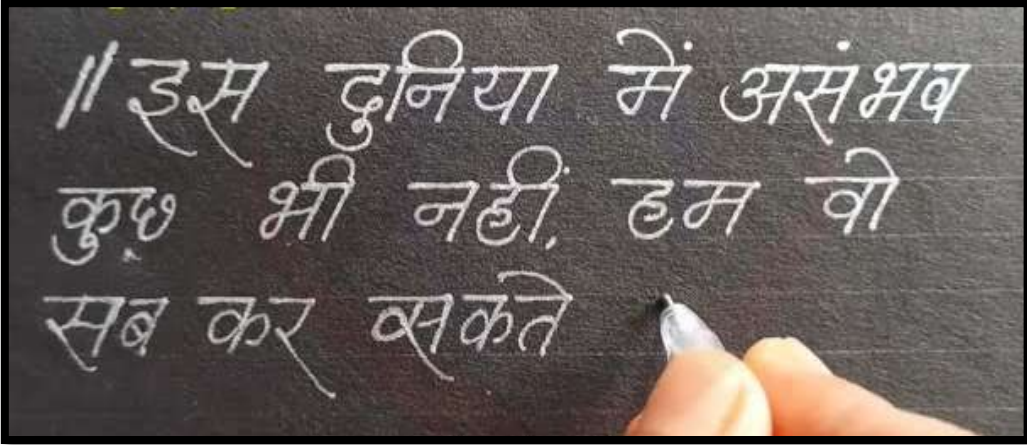 ॥ इस दुनिया में असंभव
कुछ भी नहीं, हम वो
सब कर सकते